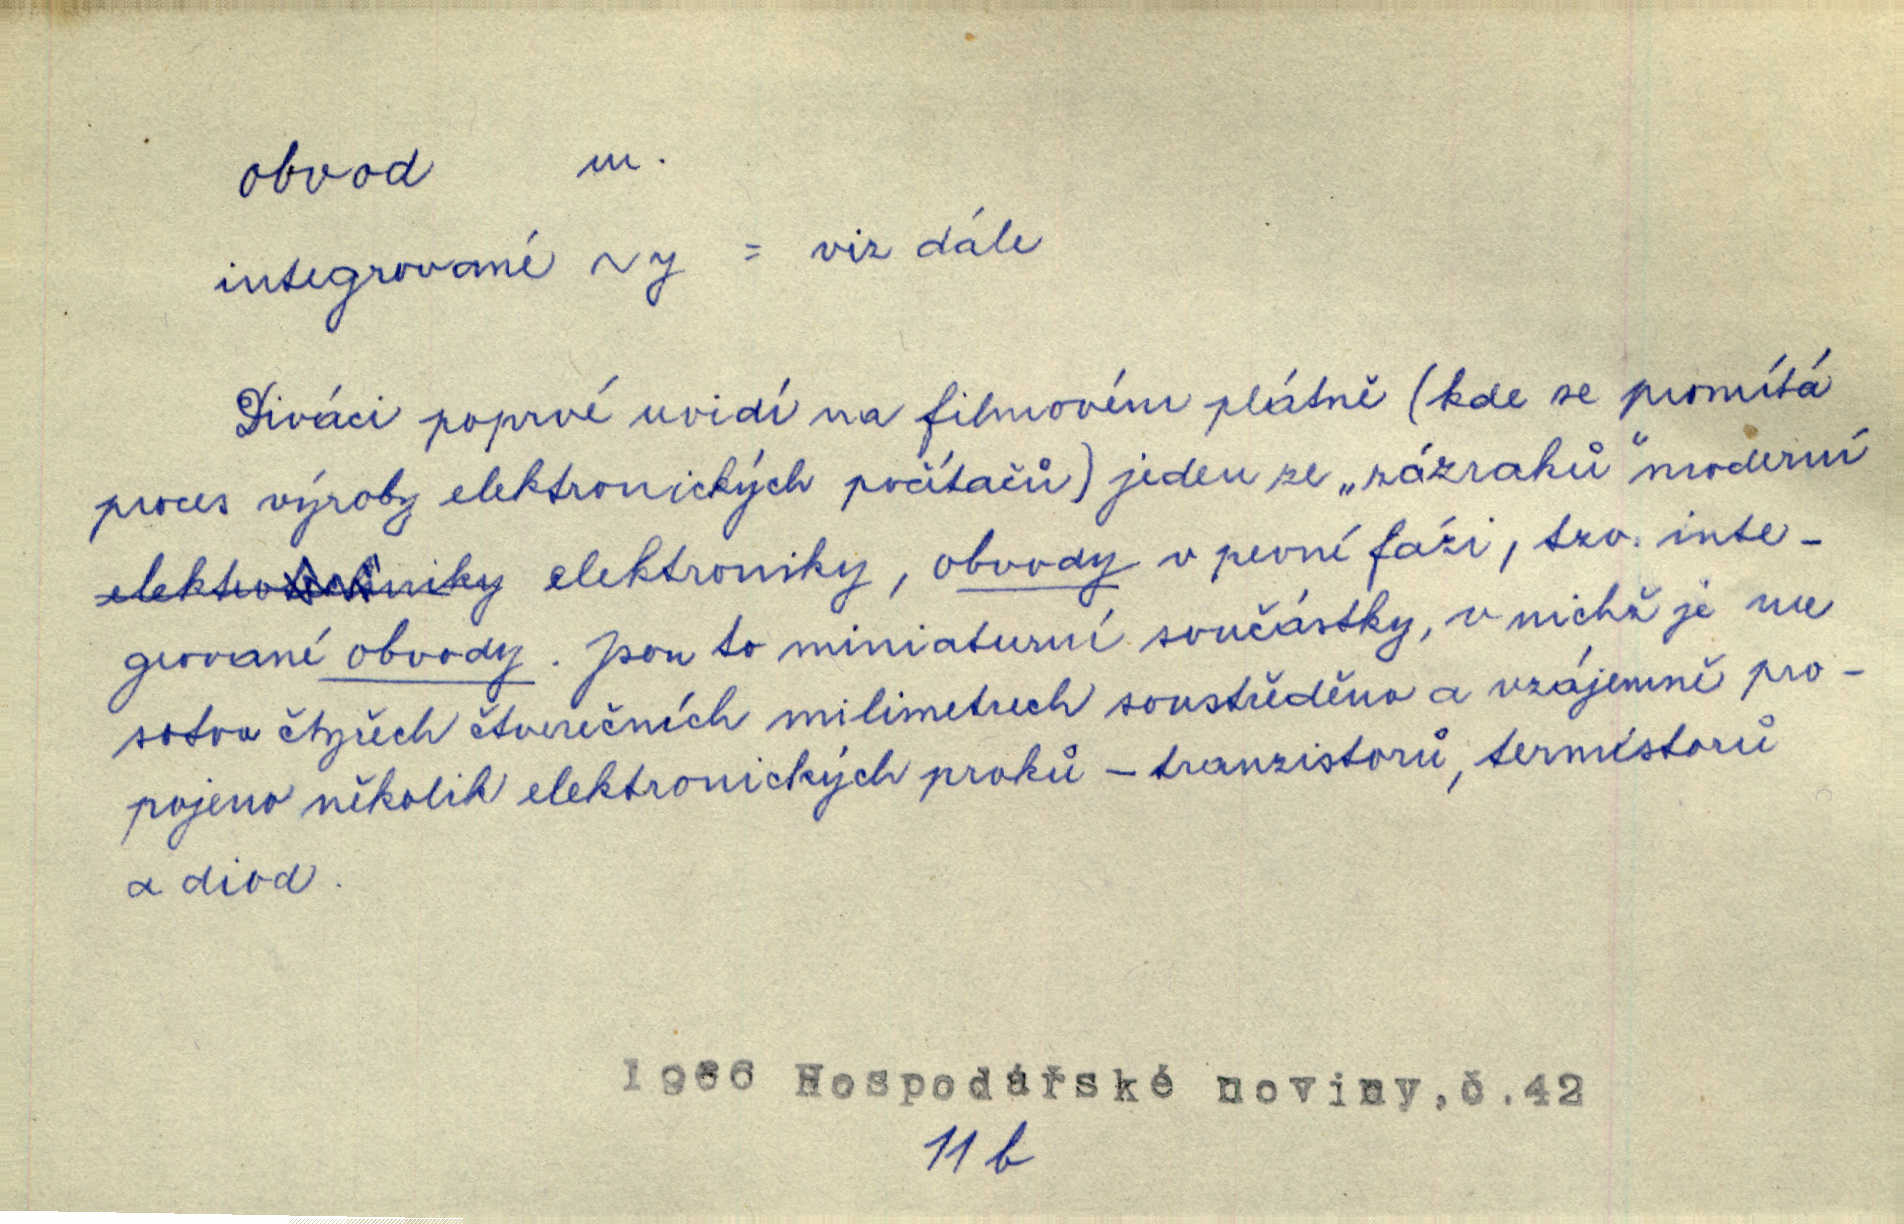 obvod m.
integrované ~y = viz dále
Diváci poprvé uvidí na filmovém plátně (kde se promítá
proces výroby elektronických počítačů) jeden ze „zázraků“ moderní
elektroniky, obvody v pevné fázi, tzv. inte-
grované obvody. Jsou to miniaturní součástky, v nichž je na
sotva čtyřech čtverečních milimetrech soustředěno a vzájemně pro-
pojeno několik elektronických prvků – tranzistorů, termistorů
a diod.
1966 Hospodářské noviny, č. 42
11 b